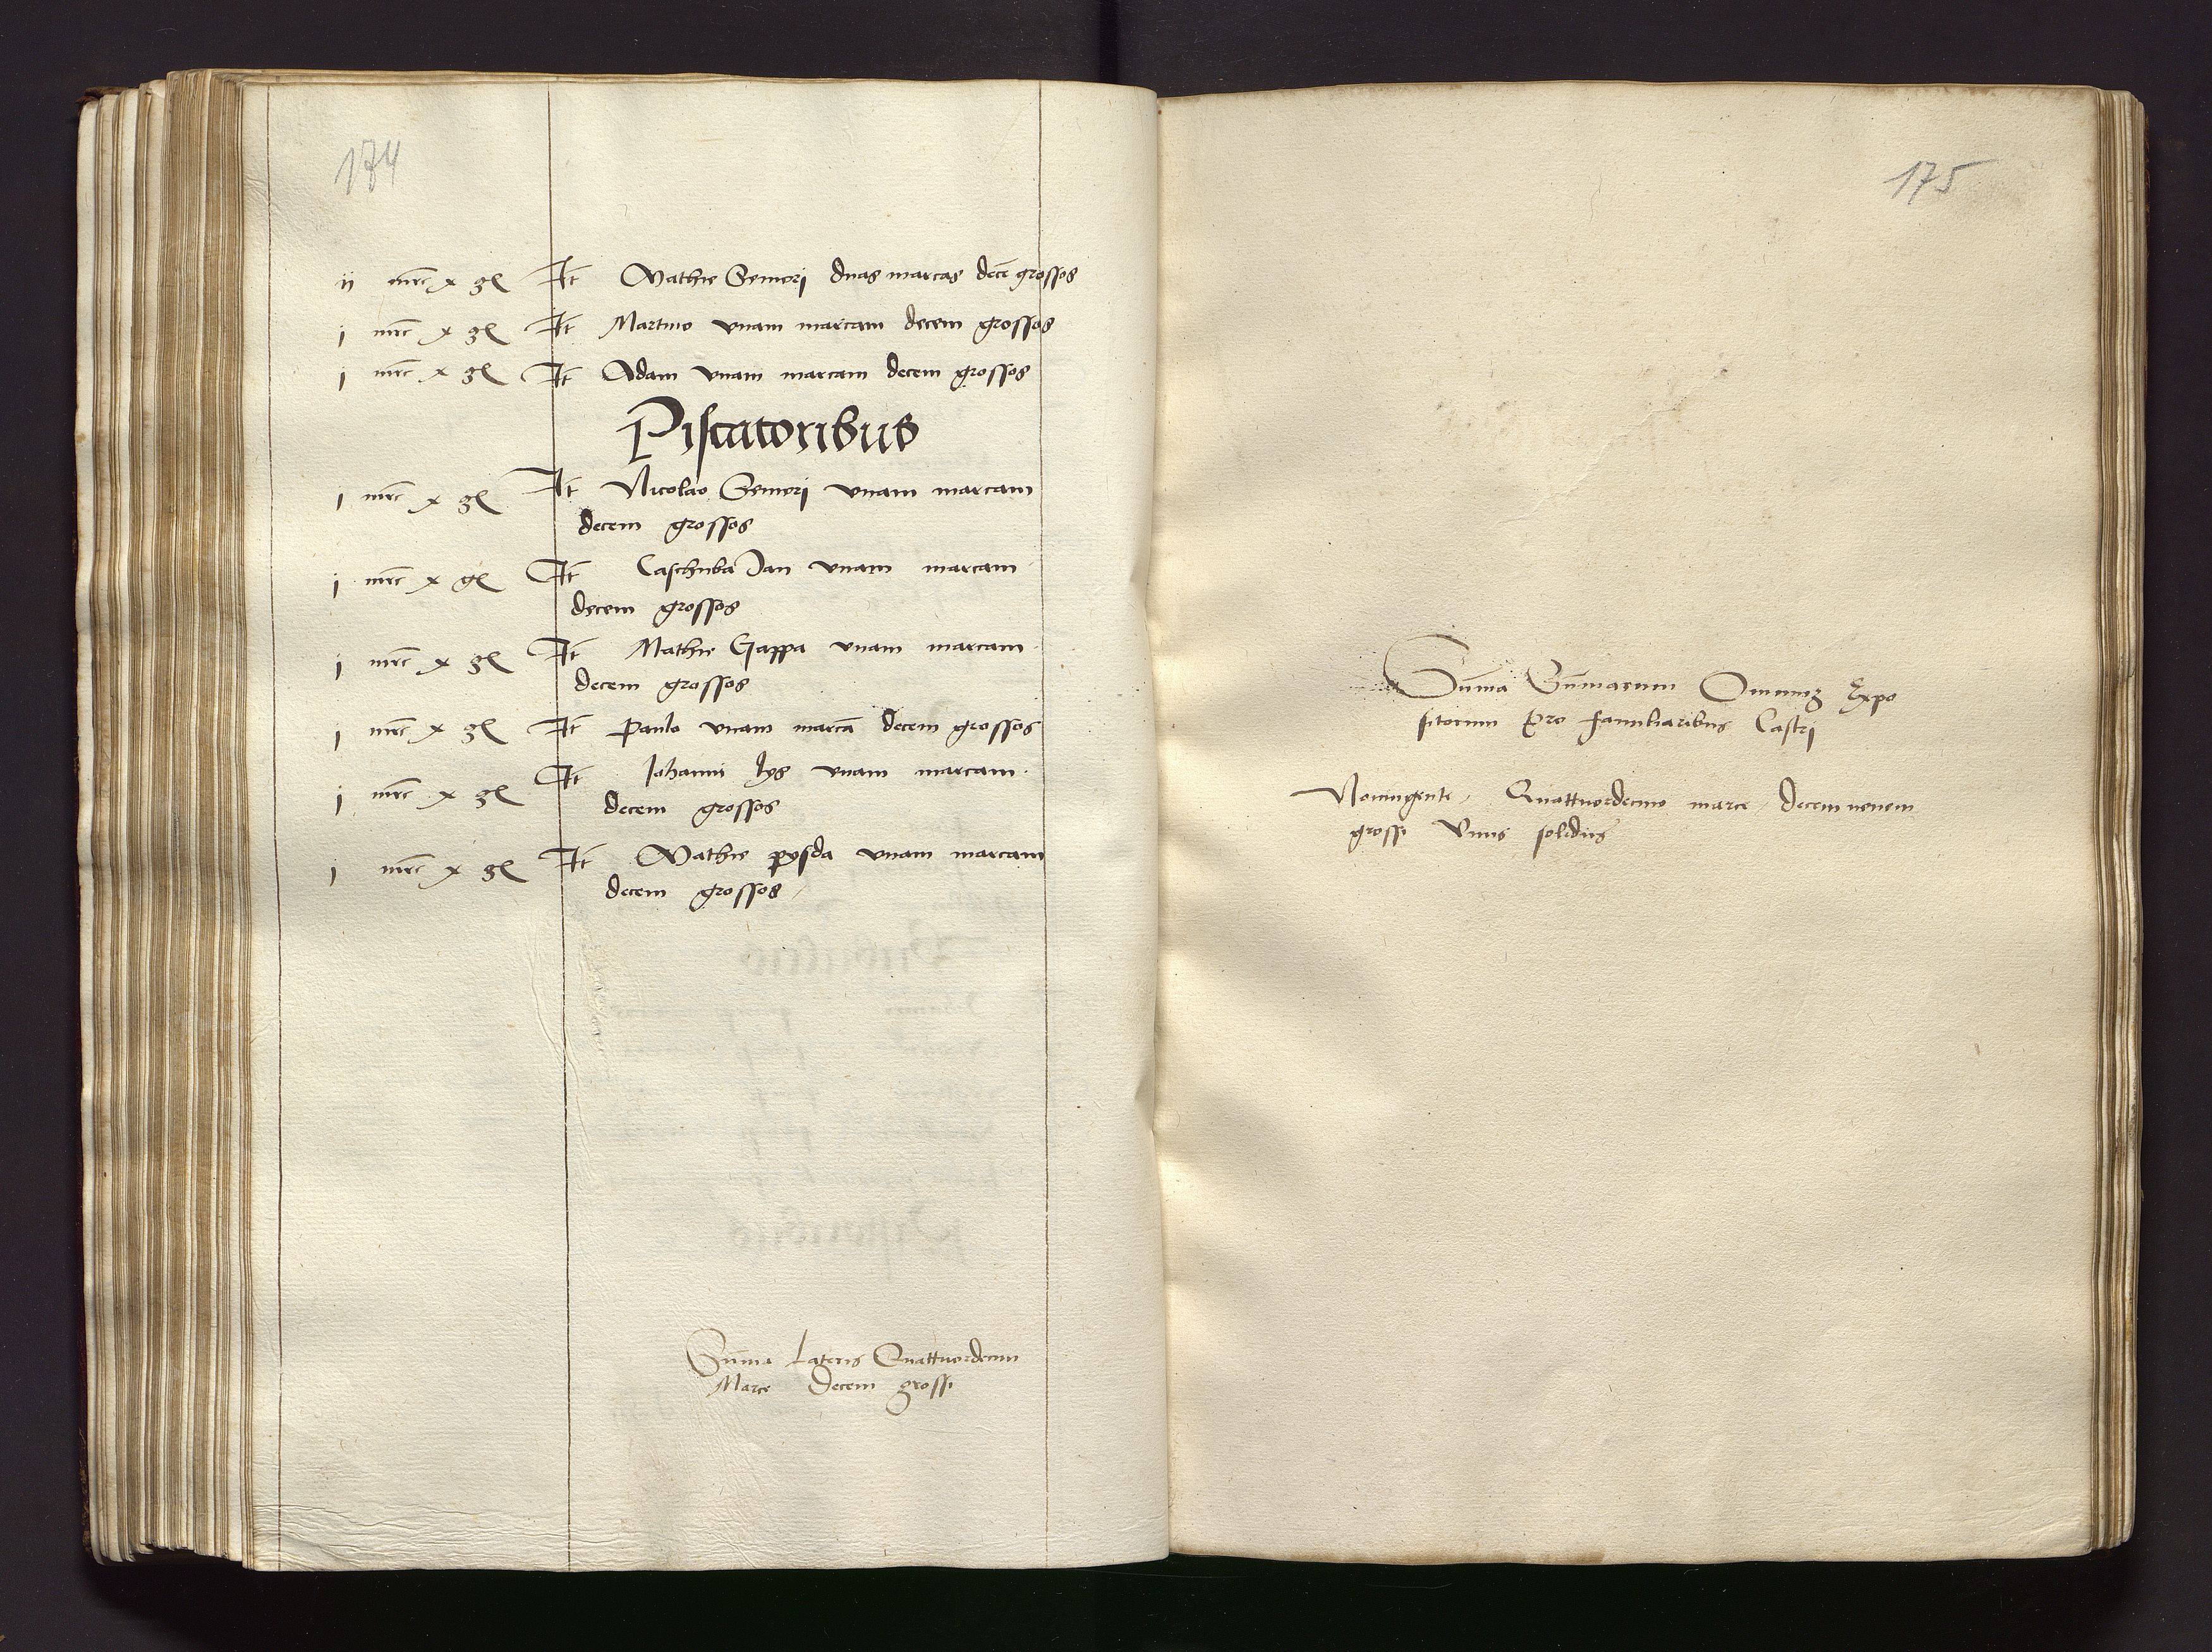 174
ij mrc x gſ It Mathie Semori duas marcas decē grossos
j mrc x gſ It Martino vnam marcam decem grossos
j mrc x gſ It Adam vnam marcam decem grossos
Piscatoribus
j mrc x gſ It Nicolao Semori vnam marcam
decem grossos
j mrc x gſ It Caschuba Jan vnam marcam
decem grossos
j mrc x gſ It Mathie Gappa vnam marcam
decem grossos
j mrc x gſ It Paulo vnam marcā decem grossos
j mrc x gſ It Johanni lys vnam marcam
decem grossos
j mrc x gſ It Mathie pysda vnam marcam
decem grossos
Sūma Lateris Quattuordecim
Marce Decem grossi
175
Sūma Sūmarum Omniuȝ Expo
sitorum Pro familiaribus Castri
Noningente Quattuordecim marce decem novem
grossi Vnus solidus